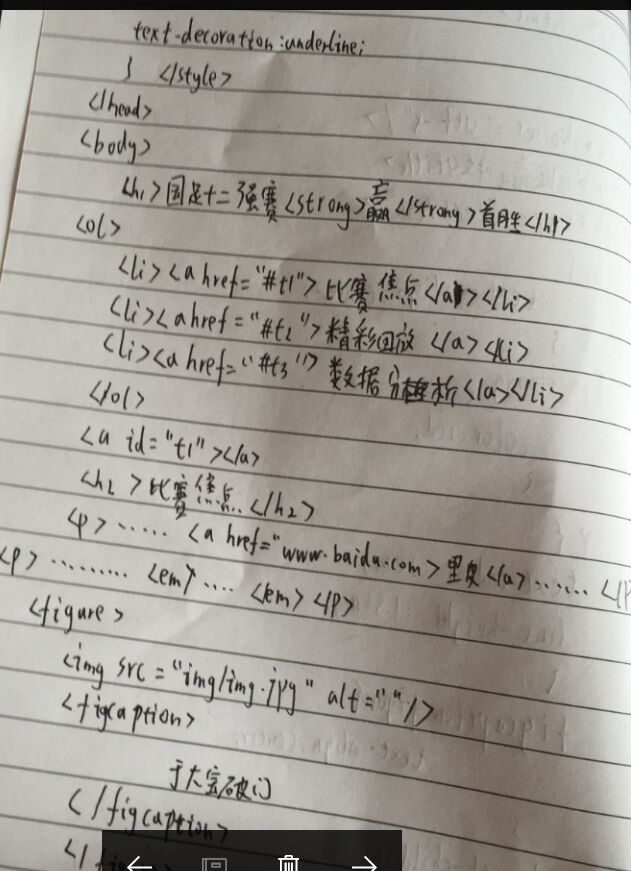 text-decoration:underline;
} </style>
</head>
<body>
<h1>国足十二强赛<strong>赢</strong>首胜</h1>
<ol>
<li><a href="#t1">比赛焦点</a></li>
<li><a href="#t2">精彩回放</a></li>
<li><a href="#t3">数据分析</a></li>
</ol>
<a id="t1"></a>
<h2>比赛焦点</h2>
<p>......<a href="www.baidu.com>里皮</a>......</p
<p>.........<em>....</em></p>
<figure>
<img src="img/img.jpg" alt=""/>
<figcaption>
于大宝破门
</figcaption>
</